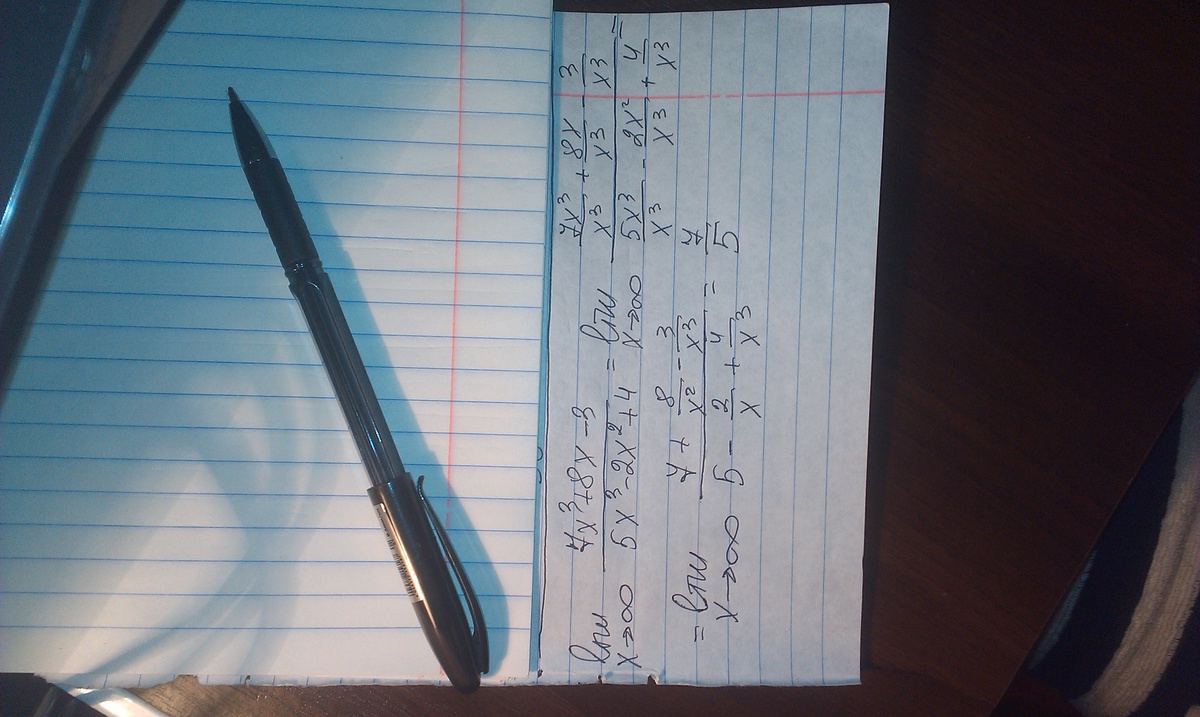 lim x→∞ (7x³+8x-3)/(5x³-2x²+4) = lim x→∞ (7x³/x³ + 8x/x³ - 3/x³)/(5x³/x³ - 2x²/x³ + 4/x³) =
= lim x→∞ (7 + 8/x² - 3/x³)/(5 - 2/x + 4/x³) = 7/5